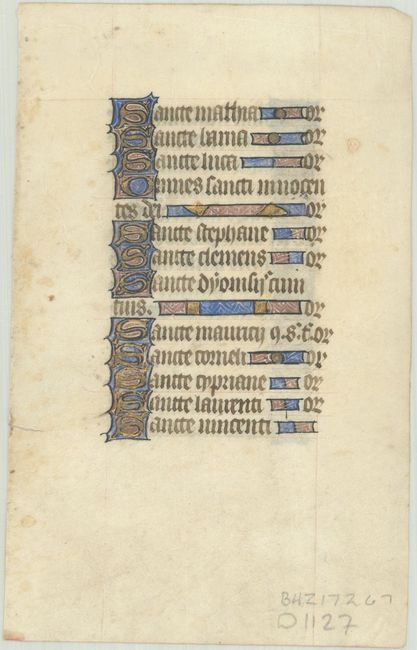 Sancte mathia or
Sancte barna or
Sancte luca or
Omnes sancti innocen
tes dei. or
Sancte stephane or
Sancte clemens or
Sancte dyonisi cum
tuis. or
Sancte maurici 9. s. t. or
Sancte corneli or
Sancte cypriane or
Sancte laurenti or
Sancte vincenti
BHZ17267
D1127